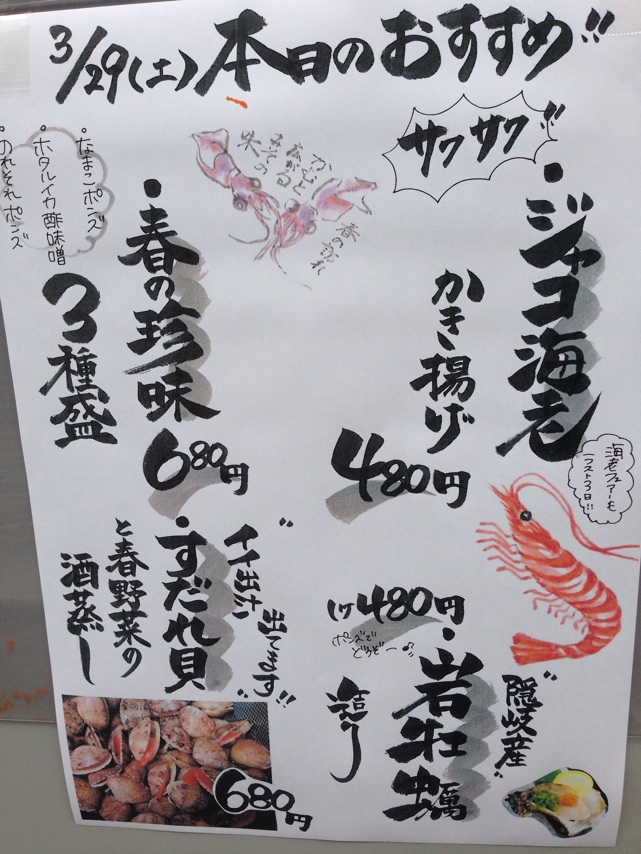 3/29(土)本日のおすすめ!!
サクサク!!
・ジャコ海老
かき揚げ
480円
海老フェアーも
ラスト3日!!
かむと
広がる
春の訪れ
・春の珍味
3種盛
・なまこポンズ
・ホタルイカ酢味噌
・のれそれポンズ
680円
"隠岐産"
・岩牡蠣
造り
480円
ポンズで
どうぞ〜♪
"イイ出汁
出てます!!"
・すだれ貝
と春野菜の
酒蒸し
680円